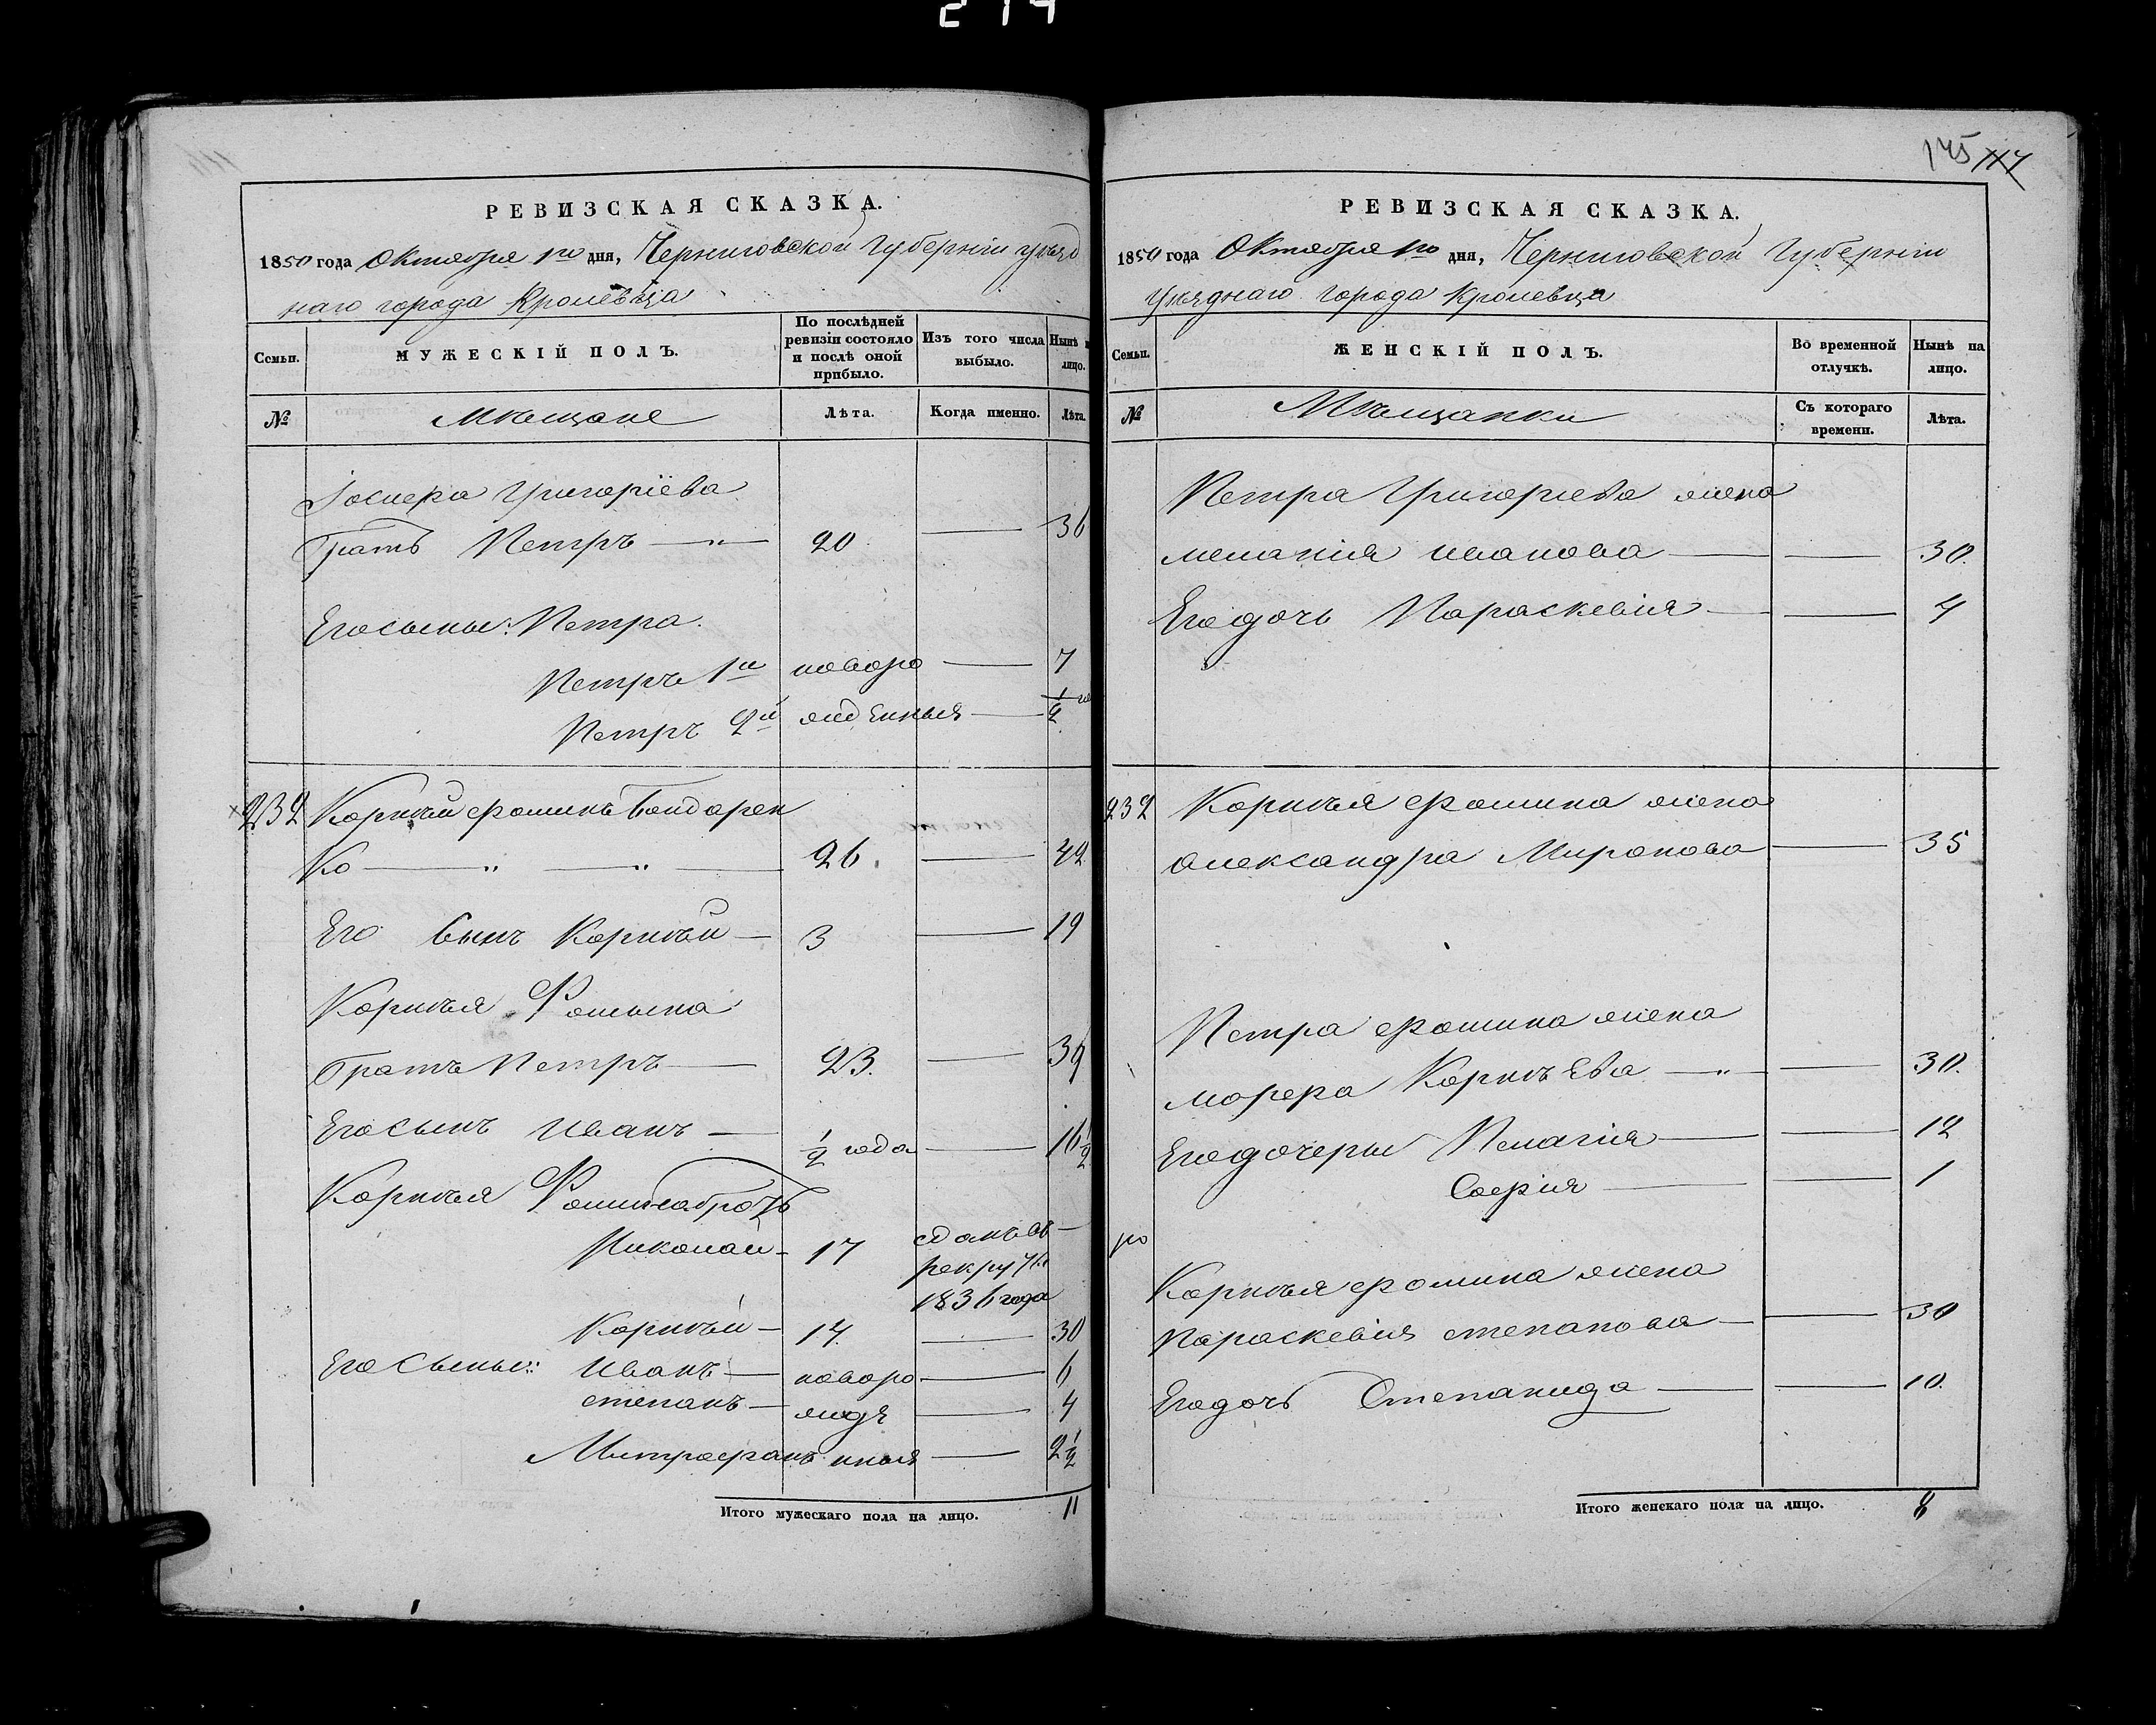 274
РЕВИЗСКАЯ СКАЗКА.
1850 года Октября 1го дня, Черниговской Губерніи уѣзд
наго города Кролевца
Семьи.
МУЖЕСКІЙ ПОЛЪ.
По послѣдней ревизіи состояло и послѣ оной прибыло.
Изъ того числа выбыло.
Нынѣ на лицо.
№
Мѣщане
Лѣта.
Когда именно.
Лѣта.
Іосифа Григоріева
братъ Петръ — " — 20 — 36
Его сыны: Петра.
Петръ 1й новоро — 7
Петръ 2й жденныя — 1/2
232 Корнѣй Фоминъ Бондарен
ко — " — " — 26. — 42
Его Сынъ Корнѣй — 3 — 19
Корнѣя Фомина
братъ Петръ — 23. — 39
Его сынъ Иванъ — 1/2 года — 16 1/2
Корнѣя Фомина братъ
Николай — 17 сданъ въ —
рекруты
1836 года
Корнѣй — 14. — 30
Его Сыны: Иванъ — новоро — 6
степанъ — жде — 4
Митрофанъ нныя — 2 1/2
Итого мужескаго пола на лицо. 11
175 117
РЕВИЗСКАЯ СКАЗКА.
1850 года Октября 1го дня, Черниговской Губерніи
Уѣзднаго города Кролевца
Семьи.
ЖЕНСКІЙ ПОЛЪ.
Во временной отлучкѣ.
Нынѣ на лицо.
№
Мѣщанки
Съ котораго времени.
Лѣта.
Петра Григориева жена
меланія иванова — — 30.
Его дочь Параскевія — — 4
232 Корнѣя Фомина жена
александра Миронова — 35
Петра Фомина жена
марфа Корнѣева — " — — 30.
Его дочеры Пелагія — — 12
Софія — — 1
Корнѣя Фомина жена
Параскевія степанова — — 30
Его дочь Степанида — — 10.
Итого женскаго пола на лицо. 8